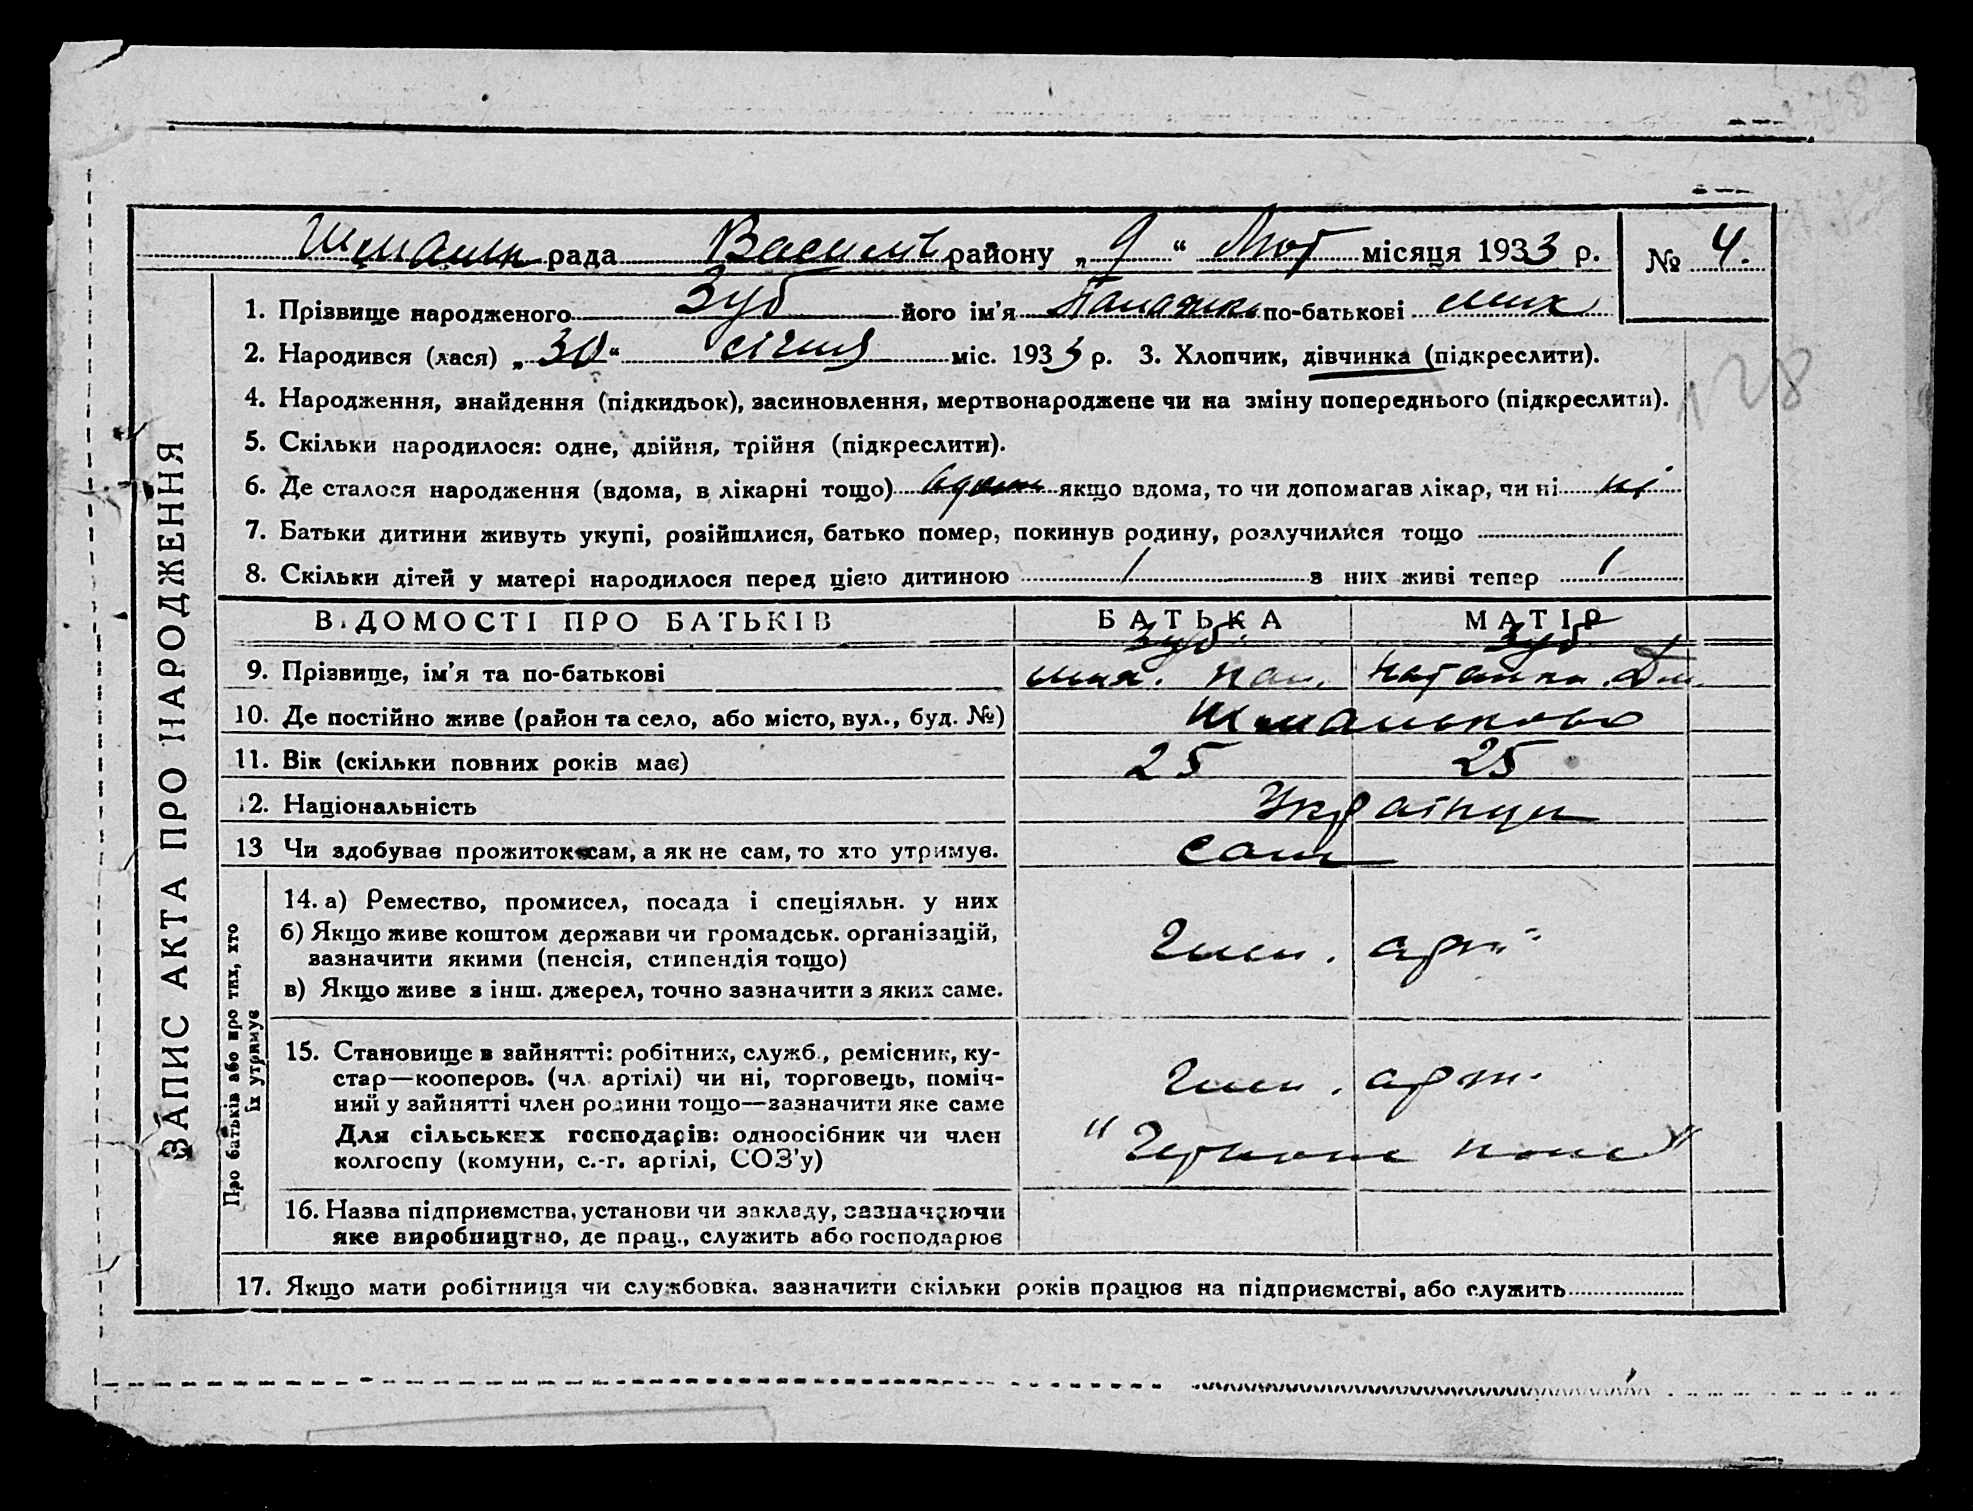 Шмальк рада Василів району „ 9 “ Лют місяця 1933 р. № 4.
1. Прізвище народженого Зуб його ім'я Палажка по-батькові Мих
2. Народився (лася) „ 30 “ січня міс. 1933 р. 3. Хлопчик, дівчинка (підкреслити).
4. Народження, знайдення (підкидьок), засиновлення, мертвонароджене чи на зміну попереднього (підкреслити).
128
5. Скільки народилося: одне, двійня, трійня (підкреслити).
6. Де сталося народження (вдома, в лікарні тощо) якщо вдома, то чи допомагав лікар, чи ні ні
7. Батьки дитини живуть укупі, розійшлися, батько помер, покинув родину, розлучилися тощо
8. Скільки дітей у матері народилося перед цією дитиною 1 з них живі тепер 1
ЗАПИС АКТА ПРО НАРОДЖЕННЯ
ВІДОМОСТІ ПРО БАТЬКІВ БАТЬКА МАТІР
Зуб Зуб
9. Прізвище, ім'я та по-батькові Мих. Пан. Наталка Дм.
10. Де постійно живе (район та село, або місто, вул., буд. №) Шмальково
11. Вік (скільки повних років має) 25 25
12. Національність Українци
13 Чи здобував прожиток сам, а як не сам, то хто утримує. сам
Про батьків або про тих, хто
їх утримує
14. а) Ремество, промисел, посада і спеціяльн. у них
б) Якщо живе коштом держави чи громадськ. організацій,
зазначити якими (пенсія, стипендія тощо)
Член. арт
в) Якщо живе з інш. джерел, точно зазначити з яких саме.
15. Становище в зайнятті: робітник, служб., ремісник, ку-
стар—кооперов. (чл. артілі) чи ні, торговець, поміч-
ний у зайнятті член родини тощо—зазначити яке саме
Член. арт.
Для сільських господарів: одноосібник чи член
колгоспу (комуни, с.-г. артілі, СОЗ'у)
16. Назва підприємства, установи чи закладу, зазначаючи
яке виробництво, де прац., служить або господарює
17. Якщо мати робітниця чи службовка, зазначити скільки років працює на підприємстві, або служить